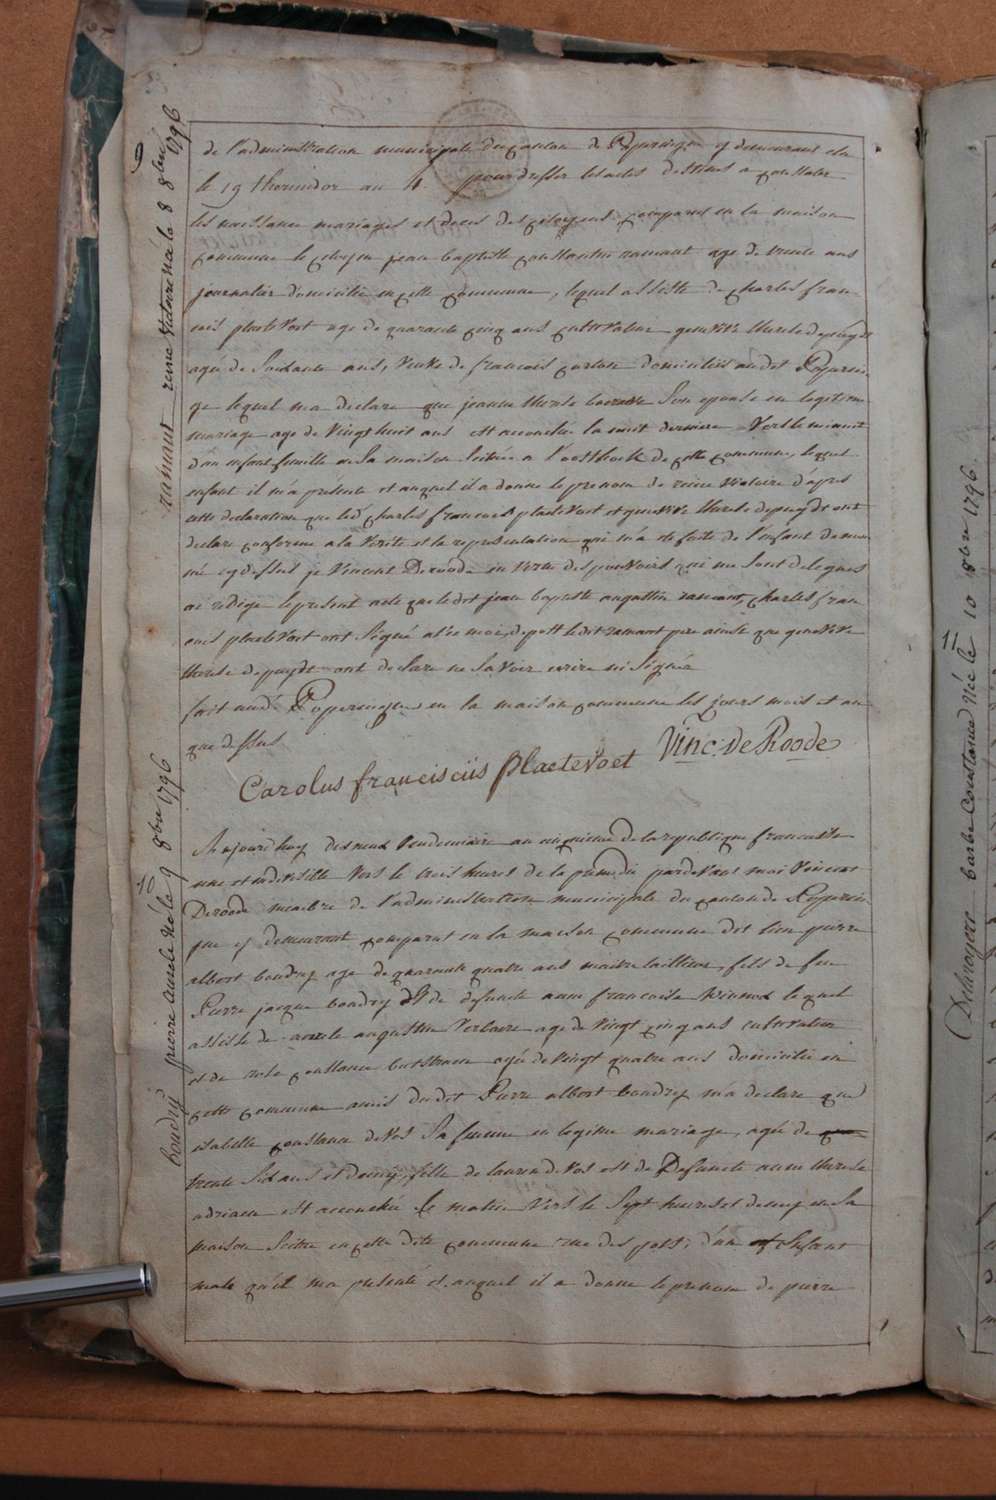 9
ramaut reine Victoire née le 8 8bre 1796
de l'administration municipale du canton de Poperinge y demeurant elu
le 19 thermidor an 4. pour dresser les actes destines a constater
les naissance mariages et deces des citoyens comparut en la maison
commune le citoyen jean baptiste ramaut age de trente ans
journalier domicilie en cette commune, lequel assiste de charles fran
cois plaetevoet age de quarante cinq ans cultivateur genevieve therese depuydt
agée de Soixante ans, veuve de francois domiciliés audit Poperin
ge lequel ma declare que jeanne therese Son epouse en legitime
mariage age de Vingt huit ans est accouchée la nuit derniere Vers le minuit
d'un enfant femelle en Sa maison Scituée a l'oosthoek de cette commune, lequel
enfant il m'a présenté et auquel il a donne le prenom de reine victoire d'apres
cette declaration que led. charles francois plaetevoet et genevieve therese depuydt ont
declare conforme a la Verité et la representation qui m'a été faite de l'enfant denom
mé cy dessus je Vincent Deroode en Vertu des pouvoirs qui me Sont delegues
ai redige le present acte que ledit jean baptiste ramaut, charles fran
cois plaetevoet ont Signé avec moi, ledit ramaut pere ainsi que genevieve
therese depuydt ont declare ne Savoir ecrire ni Signer
fait audt Poperinge en la maison commune les jours mois et an
que dessus
Carolus franciscus plaetevoet Vinc. De Roode
10
boudry pierre aurele né le 9 8bre 1796
Aujourd'huy dixneuf Vendemiaire an cinquieme de la republique francaise
une et indivisible Vers le trois heures de la pardevant moi Vincent
Deroode membre de l'administration municipale du canton de Poperin
ge y demeurant comparut en la maison commune dit lieu pierre
albert boudry age de quarante quatre ans maitre tailleur, fils de feu
Pierre jacque boudry et de defuncte anne francoise lequel
assiste de augustin Verlaere age de Vingt cinq ans cultivateur
et de rose constance agée de Vingt quatre ans domicilié en
cette commune amis dudit Pierre albert boudry m'a declare que
isabelle constance devos Sa femme en legitime mariage, agée de
trente Six ans et demy, fille de devos et de Defuncte anne therese
adriaen est accouchée le matin Vers le Sept heures et demy en Sa
maison Scitue en cette dite commune rue des pots, d'un Enfant
male qu'il ma presenté et auquel il a donne le prenom de pierre
11
Delaroyere barbe Constance Née le 10 8bre 1796.